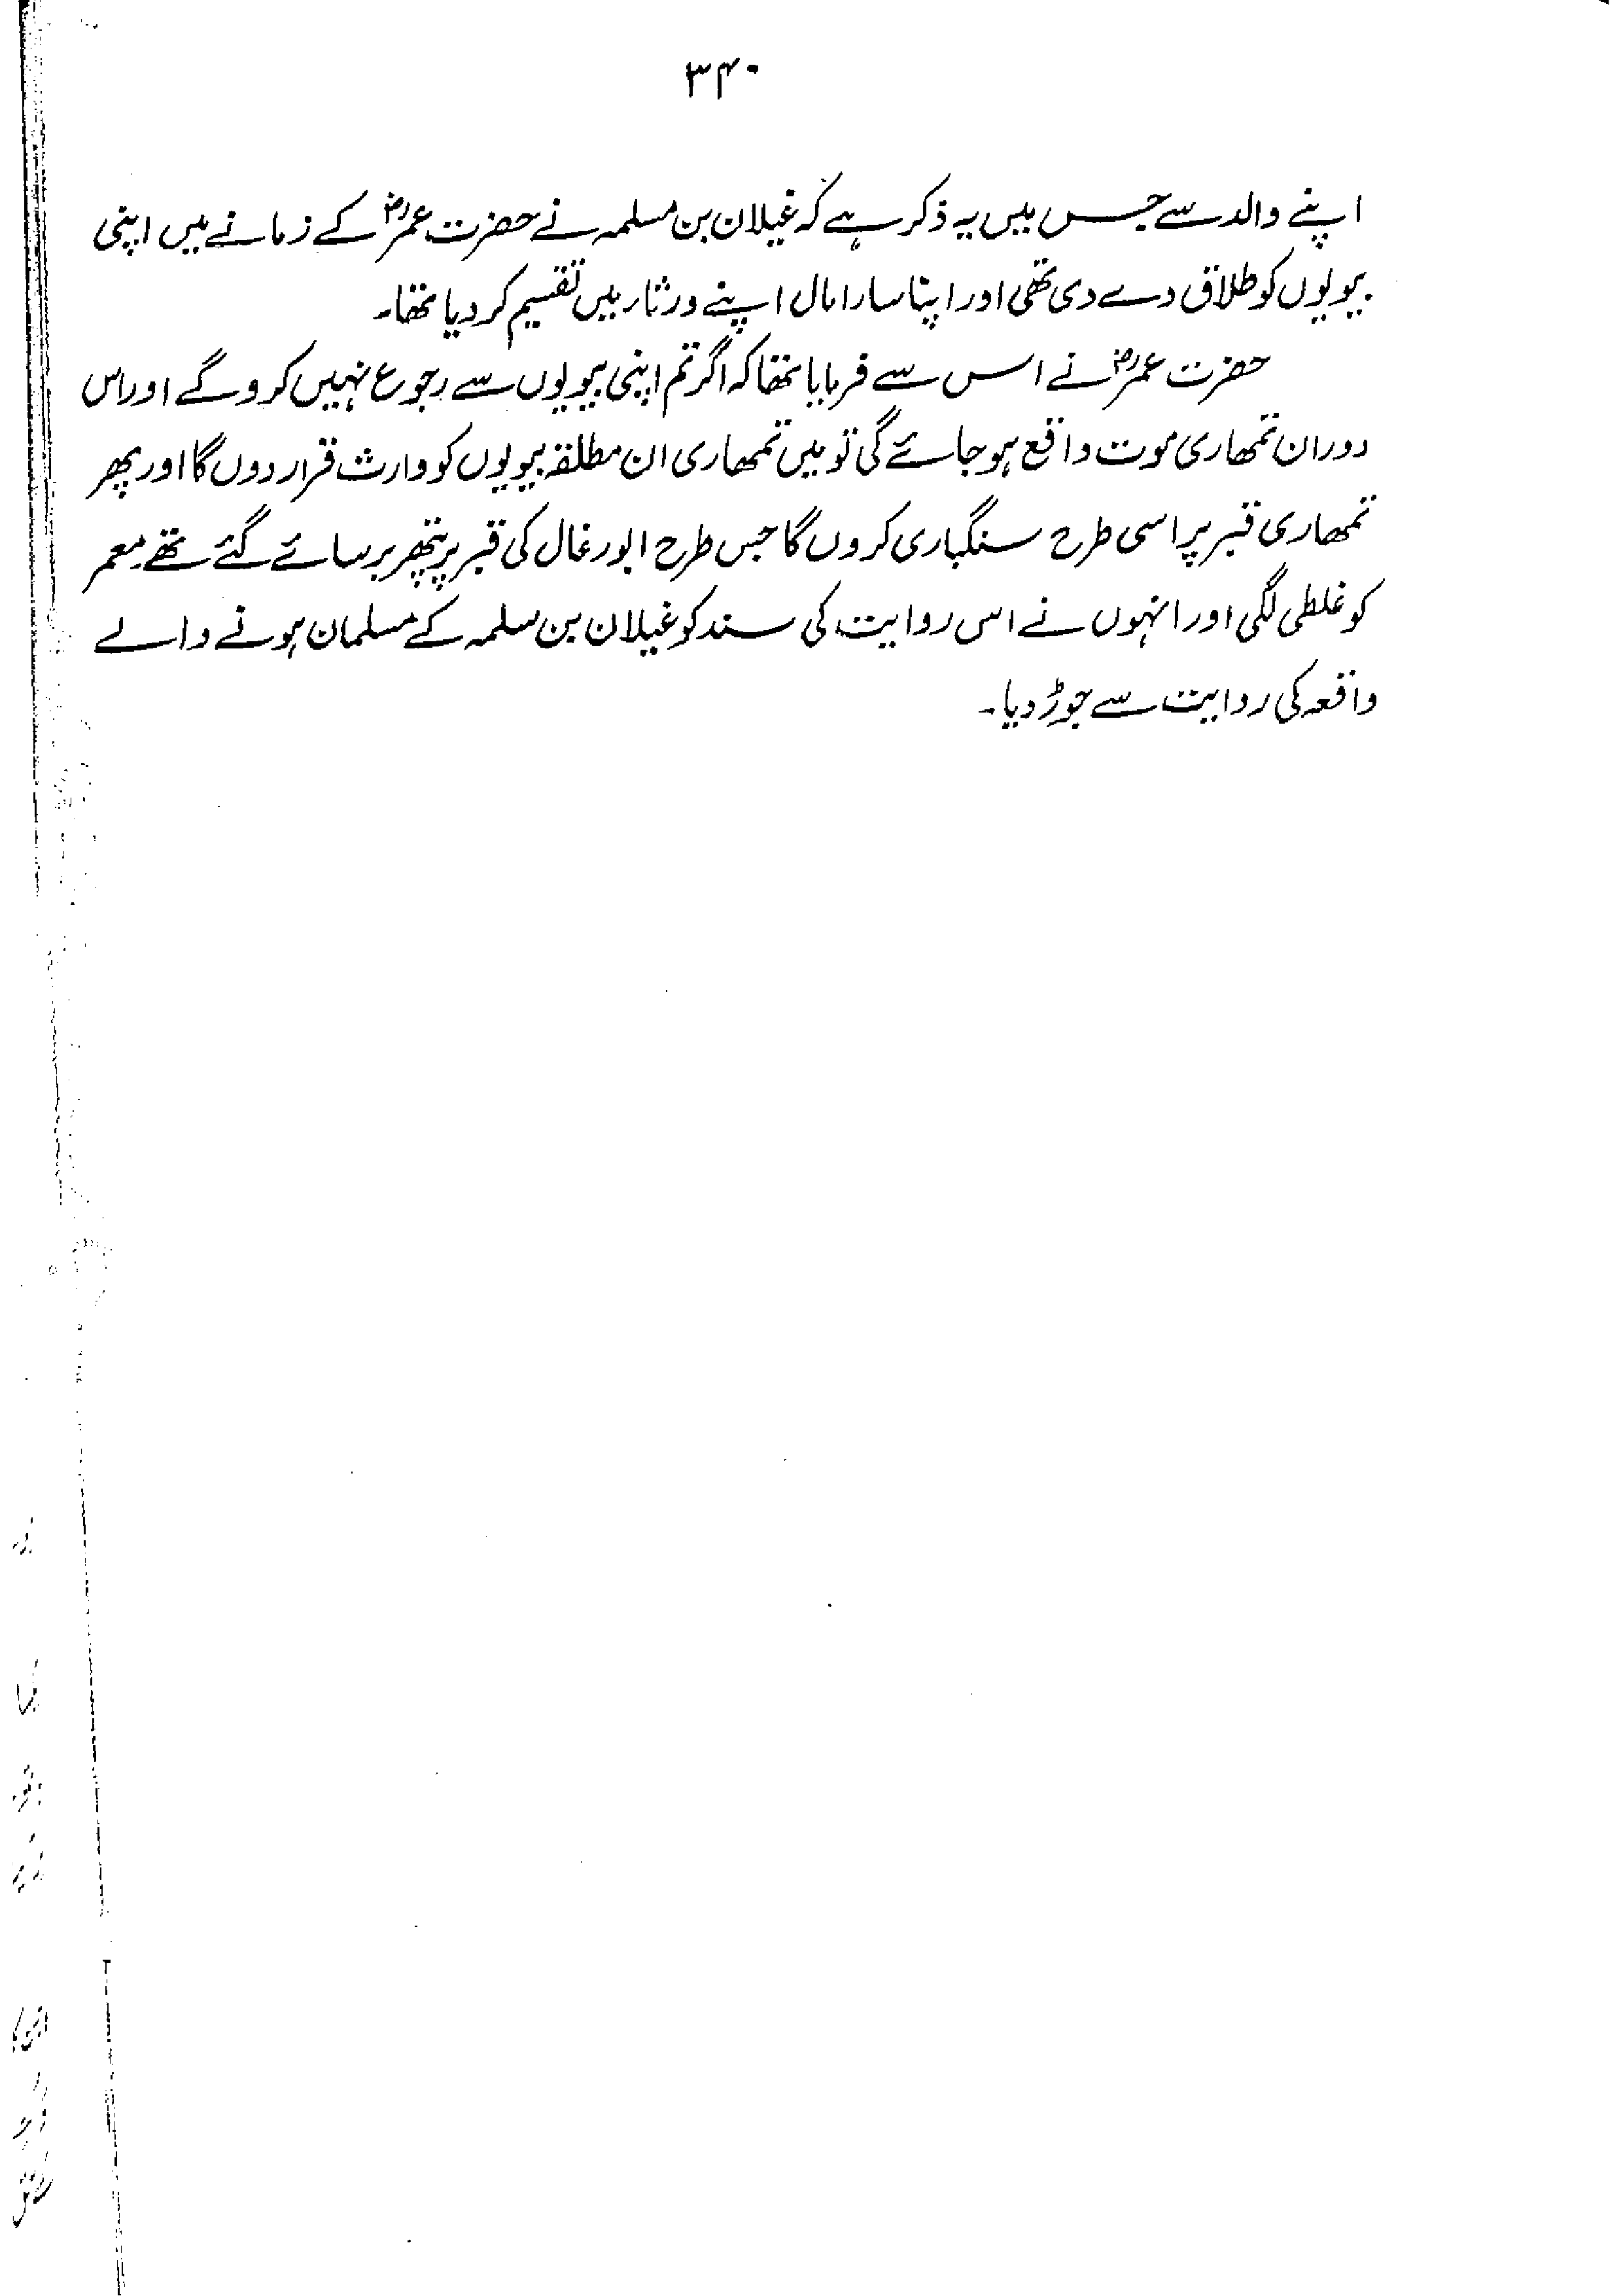 ۳۴۰
اپنے والد سے جس میں یہ ذکر ہے کہ غیلان بن مسلمہ نے حضرت عمرؓ کے زمانے میں اپنی
بیویوں کو طلاق دے دی تھی اور اپنا سارا مال اپنے ورثار میں تقسیم کر دیا تھا۔
حضرت عمرؓ نے اس سے فرمایا تھا کہ اگر تم اپنی بیویوں سے رجوع نہیں کرو گے اور اس
دوران تمھاری موت واقع ہو جائے گی تو میں تمھاری ان مطلقہ بیویوں کو وارث قرار دوں گا اور پھر
تمھاری قبر پر اسی طرح سنگباری کروں گا جس طرح ابورغال کی قبر پر پتھر برسائے گئے تھے۔ معمر
کو غلطی لگی اور انہوں نے اس روایت کی سند کو غیلان بن سلمہ کے مسلمان ہونے والے
واقعہ کی روایت سے جوڑ دیا۔